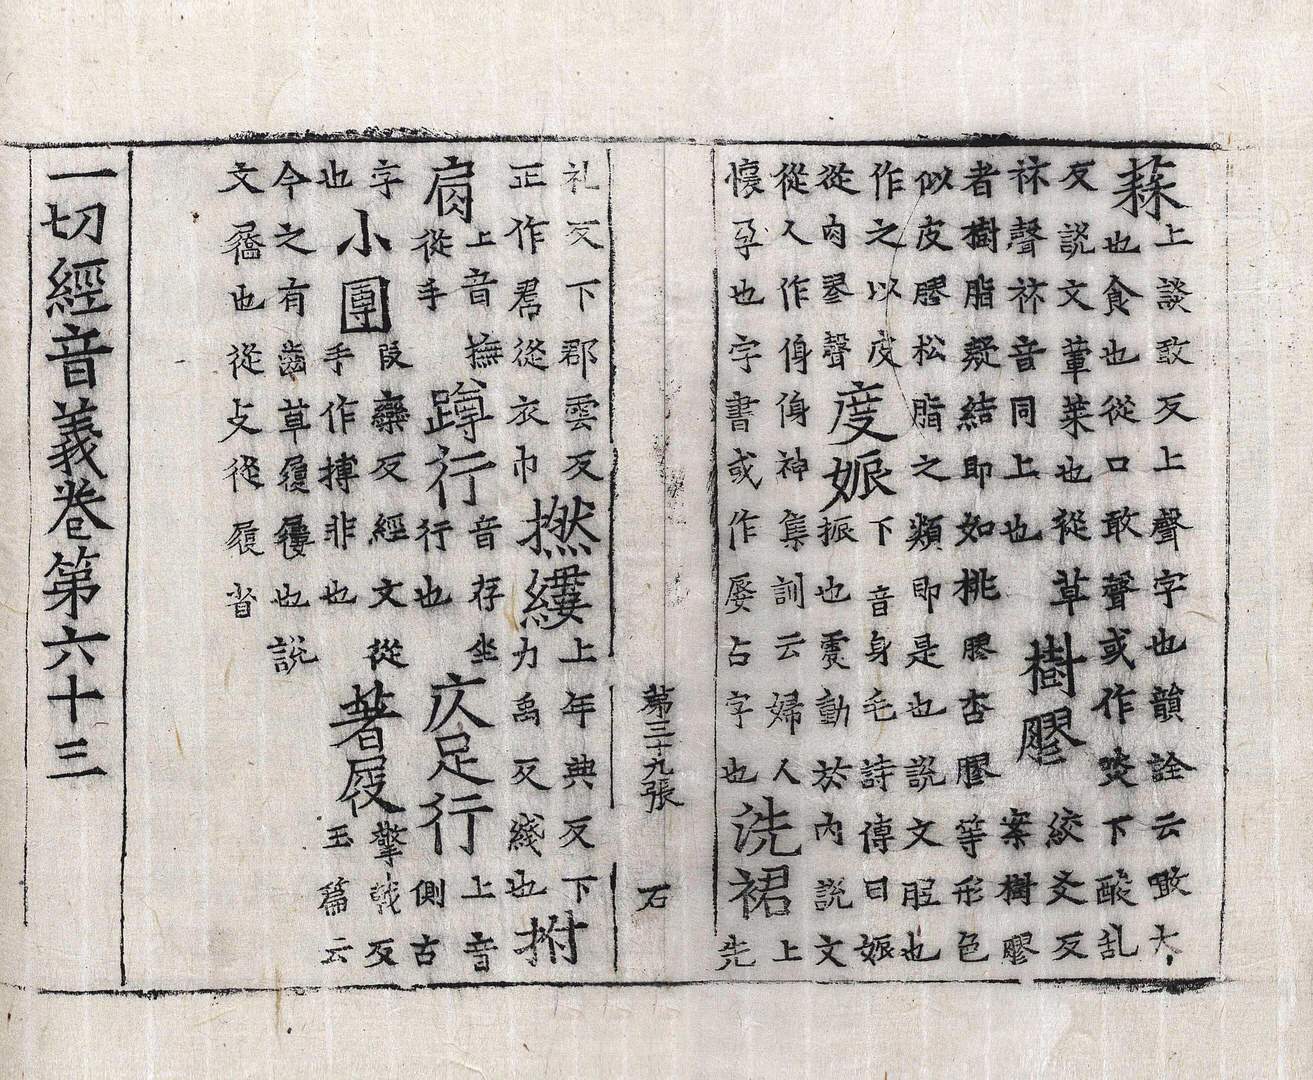 蒜上談敢反上聲字也韻詮云噉大也食也從口敢聲或作啖下酸乱
反說文葷菜也從草祘聲祘音同上也樹膠絞爻反案樹膠
者樹脂凝結即如桃膠杏膠等形色似皮膠松脂之類即是也說文脛也
作之以皮從肉翏聲度娠下音身毛詩傳曰娠振也震動於内說文
從人作㑗㑗神集訓云婦人懷孕也字書或作占字也洗裙上先
第三十九張 石
礼反下郡雲反正作裠從衣巾撚縷上年典反下力禹反綫也拊
肩上音撫從手蹲行音存坐行也仄足行上音側古
字也小團段欒反經文從手作摶非也著屐擎戟反玉篇云
今之有齒草履屨也說文屩也從攴從履省
一切經音義卷第六十三